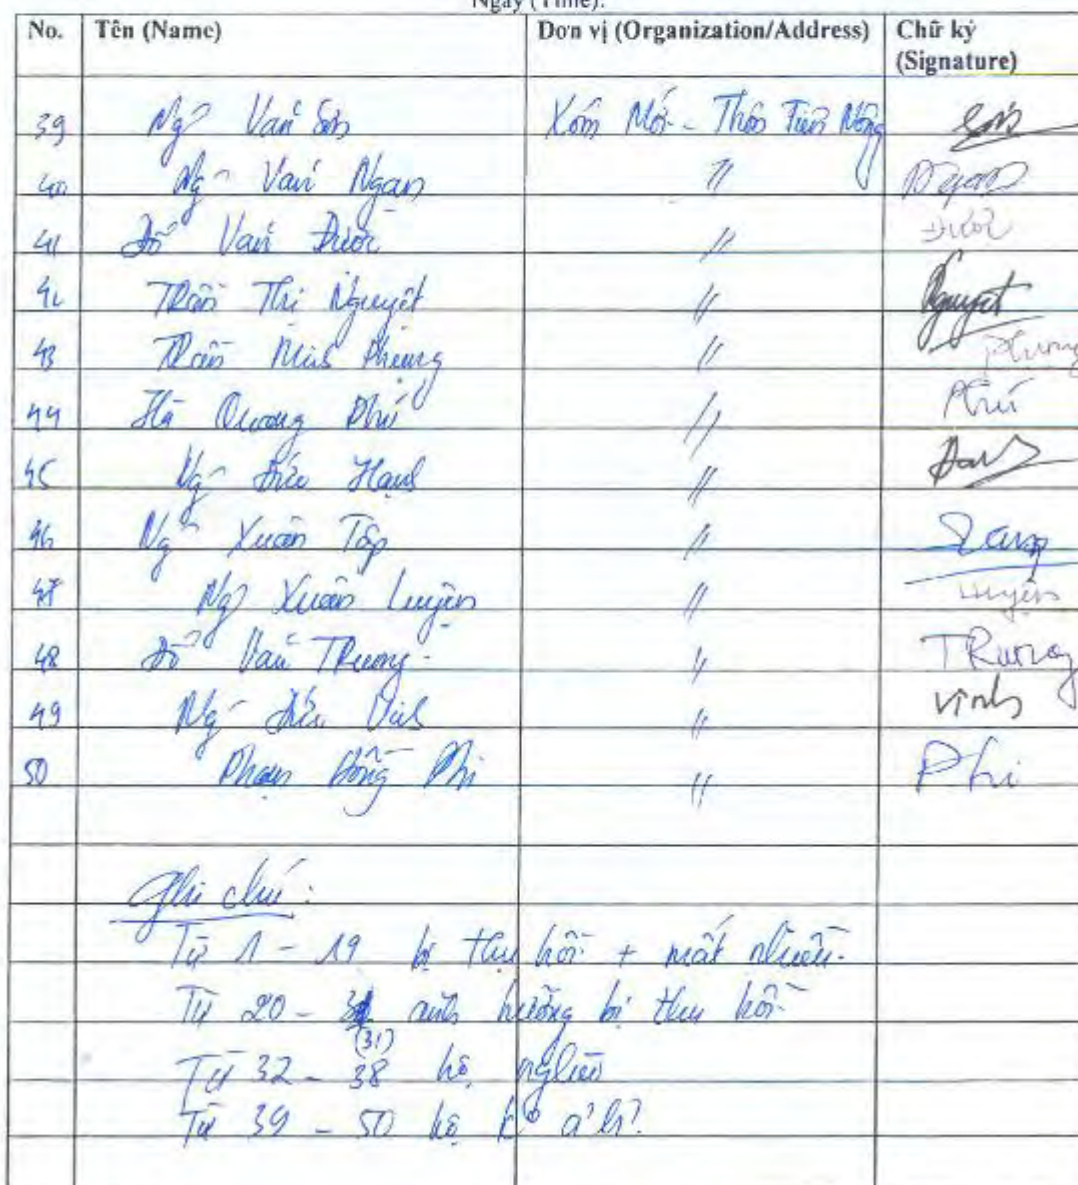 Ngày (Time):
No. Tên (Name) Đơn vị (Organization/Address) Chữ ký
(Signature)
39 Ngô Văn Sơn Xóm Mới - Thôn Tiên Nông Sơn
40 Ngô Văn Ngạn // Ngạn
41 Đỗ Văn Được // Được
42 Trần Thị Nguyệt // Nguyệt
43 Trần Minh Phụng // Phụng
44 Hà Quang Phú // Phú
45 Ngô Đức Hạnh //
46 Ngô Xuân Tập //
47 Ngô Xuân Luyện // Luyện
48 Đỗ Văn Trương // Trương
49 Ngô Đức Vinh // Vinh
50 Phạm Hồng Phi // Phi
Ghi chú:
Từ 1 - 19 bị thu hồi + mất nhiều.
Từ 20 - 31 ảnh hưởng bị thu hồi
(31)
Từ 32 - 38 hộ nghèo
Từ 39 - 50 hộ ko a'h?